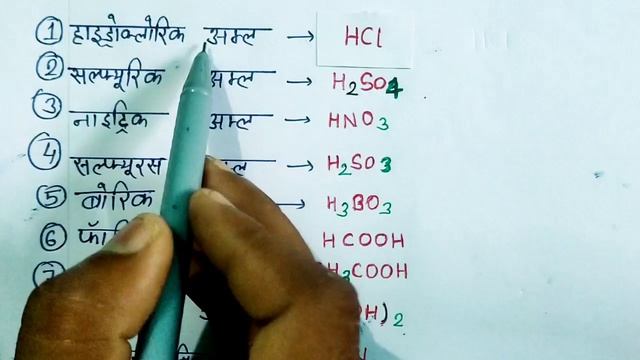 ① हाइड्रोक्लोरिक अम्ल → HCl
② सल्फ्यूरिक अम्ल → H₂SO₄
③ नाइट्रिक अम्ल → HNO₃
④ सल्फ्यूरस → H₂SO₃
⑤ बोरिक → H₃BO₃
⑥ HCOOH
COOH
)₂